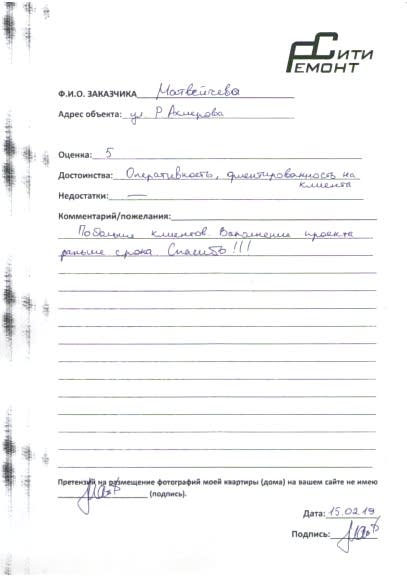 СИТИ
РЕМОНТ
Ф.И.О. ЗАКАЗЧИКА Матвейчева
Адрес объекта: ул Р Ахмерова
Оценка: 5
Достоинства: Оперативность, ориентированность на
клиента
Недостатки: —
Комментарий/пожелания:
Побольше клиентов. Выполнении проекта
раньше срока Спасибо!!!
Претензий на размещение фотографий моей квартиры (дома) на вашем сайте не имею
(подпись).
Дата: 15.02.19
Подпись: